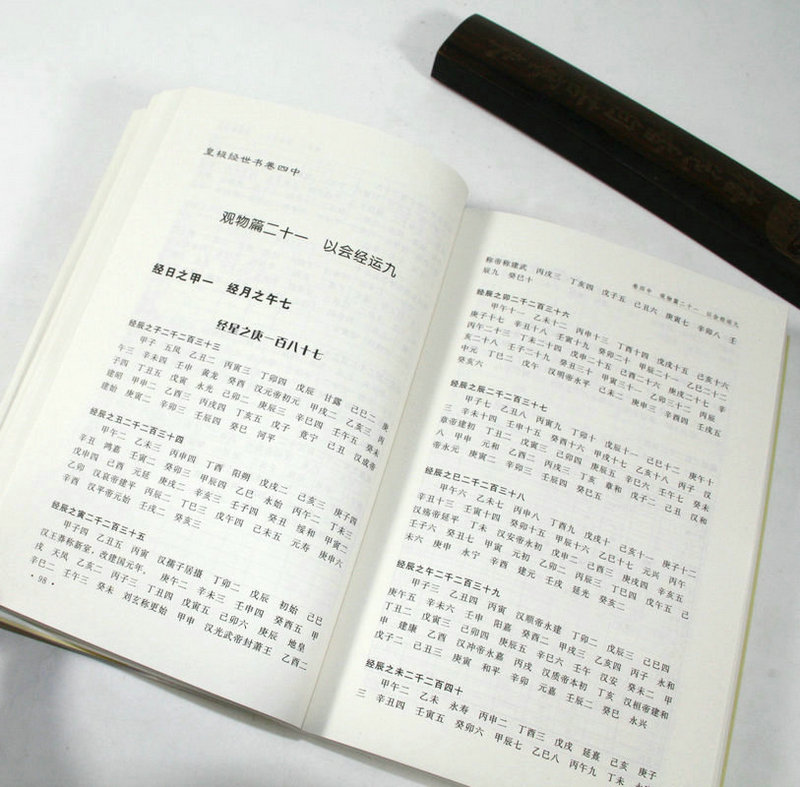 皇极经世书卷四中
观物篇二十一　以会经运九
经日之甲一　经月之午七
经星之庚一百八十七
经辰之子二千二百三十三
甲子　五凤　乙丑二　丙寅三　丁卯四　戊辰　甘露　己巳二　庚
午三　辛未四　壬申　黄龙　癸酉　汉元帝初元　甲戌二　乙亥三　丙
子四　丁丑五　戊寅　永光　己卯二　庚辰三　辛巳四　壬午五　癸未
建昭　甲申二　乙酉三　丙戌四　丁亥五　戊子　竟宁　己丑　汉成帝
建始　庚寅二　辛卯三　壬辰四　癸巳　河平
经辰之丑二千二百三十四
甲午二　乙未三　丙申四　丁酉　阳朔　戊戌二　己亥三　庚子四
辛丑　鸿嘉　壬寅二　癸卯三　甲辰四　乙巳　永始　丙午二　丁未三
戊申四　己酉　元延　庚戌二　辛亥三　壬子四　癸丑　绥和　甲寅二
乙卯　汉哀帝建平　丙辰二　丁巳三　戊午四　己未五　元寿　庚申六
辛酉　汉平帝元始　壬戌二　癸亥三
经辰之寅二千二百三十五
甲子四　乙丑五　丙寅　汉孺子居摄　丁卯二　戊辰　初始　己巳
汉王莽称新室，改建国元年，　庚午二　辛未三　壬申四　癸酉五　甲
戌　天凤　乙亥二　丙子三　丁丑四　戊寅五　己卯六　庚辰　地皇
辛巳二　壬午三　癸未　刘玄称更始　甲申　汉光武帝封萧王　乙酉二
·98·
卷四中　观物篇二十一　以会经运九
称帝称建武　丙戌三　丁亥四　戊子五　己丑六　庚寅七　辛卯八　壬
辰九　癸巳十
经辰之卯二千二百三十六
甲午十一　乙未十二　丙申十三　丁酉十四　戊戌十五　己亥十六
庚子十七　辛丑十八　壬寅十九　癸卯二十　甲辰二十一　乙巳二十二
丙午二十三　丁未二十四　戊申二十五　己酉二十六　庚戌二十七　辛
亥二十八　壬子二十九　癸丑三十　甲寅三十一　乙卯三十二　丙辰
中元　丁巳二　戊午　汉明帝永平　己未二　庚申三　辛酉四　壬戌五
癸亥六
经辰之辰二千二百三十七
甲子七　乙丑八　丙寅九　丁卯十　戊辰十一　己巳十二　庚午十
三　辛未十四　壬申十五　癸酉十六　甲戌十七　乙亥十八　丙子　汉
章帝建初　丁丑二　戊寅三　己卯四　庚辰五　辛巳六　壬午七　癸未
八　甲申　元和　乙酉二　丙戌三　丁亥　章和　戊子二　己丑　汉和
帝永元　庚寅二　辛卯三　壬辰四　癸巳五
经辰之巳二千二百三十八
甲午六　乙未七　丙申八　丁酉九　戊戌十　己亥十一　庚子十二
辛丑十三　壬寅十四　癸卯十五　甲辰十六　乙巳十七　元兴　丙午
汉殇帝延平　丁未　汉安帝永初　戊申二　己酉三　庚戌四　辛亥五
壬子六　癸丑七　甲寅　元初　乙卯二　丙辰三　丁巳四　戊午五　己
未六　庚申　永宁　辛酉　建光　壬戌　延光　癸亥二
经辰之午二千二百三十九
甲子三　乙丑四　丙寅　汉顺帝永建　丁卯二　戊辰三　己巳四
庚午五　辛未六　壬申　阳嘉　癸酉二　甲戌三　乙亥四　丙子　永和
丁丑二　戊寅三　己卯四　庚辰五　辛巳六　壬午　汉安　癸未二　甲
申　建康　乙酉　汉冲帝永嘉　丙戌　汉质帝本初　丁亥　汉桓帝建和
戊子二　己丑三　庚寅　和平　辛卯　元嘉　壬辰二　癸巳　永兴
经辰之未二千二百四十
甲午二　乙未　永寿　丙申二　丁酉三　戊戌　延嘉　己亥　庚子
三　辛丑四　壬寅五　癸卯六　甲辰七　乙巳八　丙午九　丁未